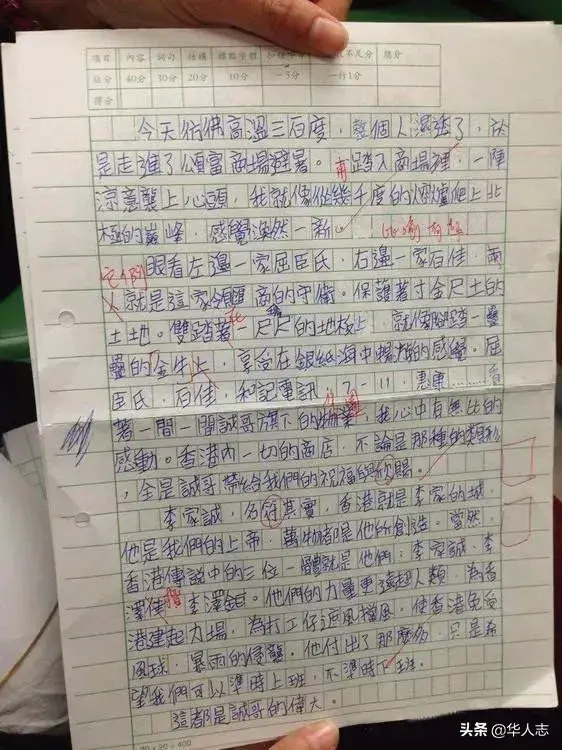 項目 內容 詞句 結構 標點字體 總分
給分 40分 30分 20分 10分 -5分 一行1分
得分
今天彷彿高溫三百度，整個人濕透了，於
是走進了頌富商場避暑。再踏入商場裡，一陣
涼意襲上心頭，我就像從幾千度的熔爐爬上北
極的巔峰，感覺渙然一新。
它們
眼看左邊一家屈臣氏，右邊一家百佳，兩
人就是這家領匯商的守衛。保護著寸金尺土的
土地。雙踏著一尺尺的地板上，就像腳踏疊
疊的金牛上，享受在銀紙海中暢游的感覺。屈
臣氏，百佳，和記電訊，7-11，惠康……看
著一間一間誠哥旗下的物業，我心中有無比的
感動。香港內一切的商店，不論是那種的類別
，全是誠哥帶給我們的祝福的恩賜。
李家誠，名符其實，香港就是李家的城，
他是我們的上帝，萬物都是他所創造。當然，
香港傳說中的三位一體就是他們：李家誠、李
澤楷、李澤鉅。他們的力量更強超人類，為香
港建起力場，為打工仔遮風擋風，使香港免受
風球、暴雨的侵襲。他付出了那麼多，只是希
望我們可以準時上班，不準時下班。
這都是誠哥的偉大。
20×20=400
头条 @华人志